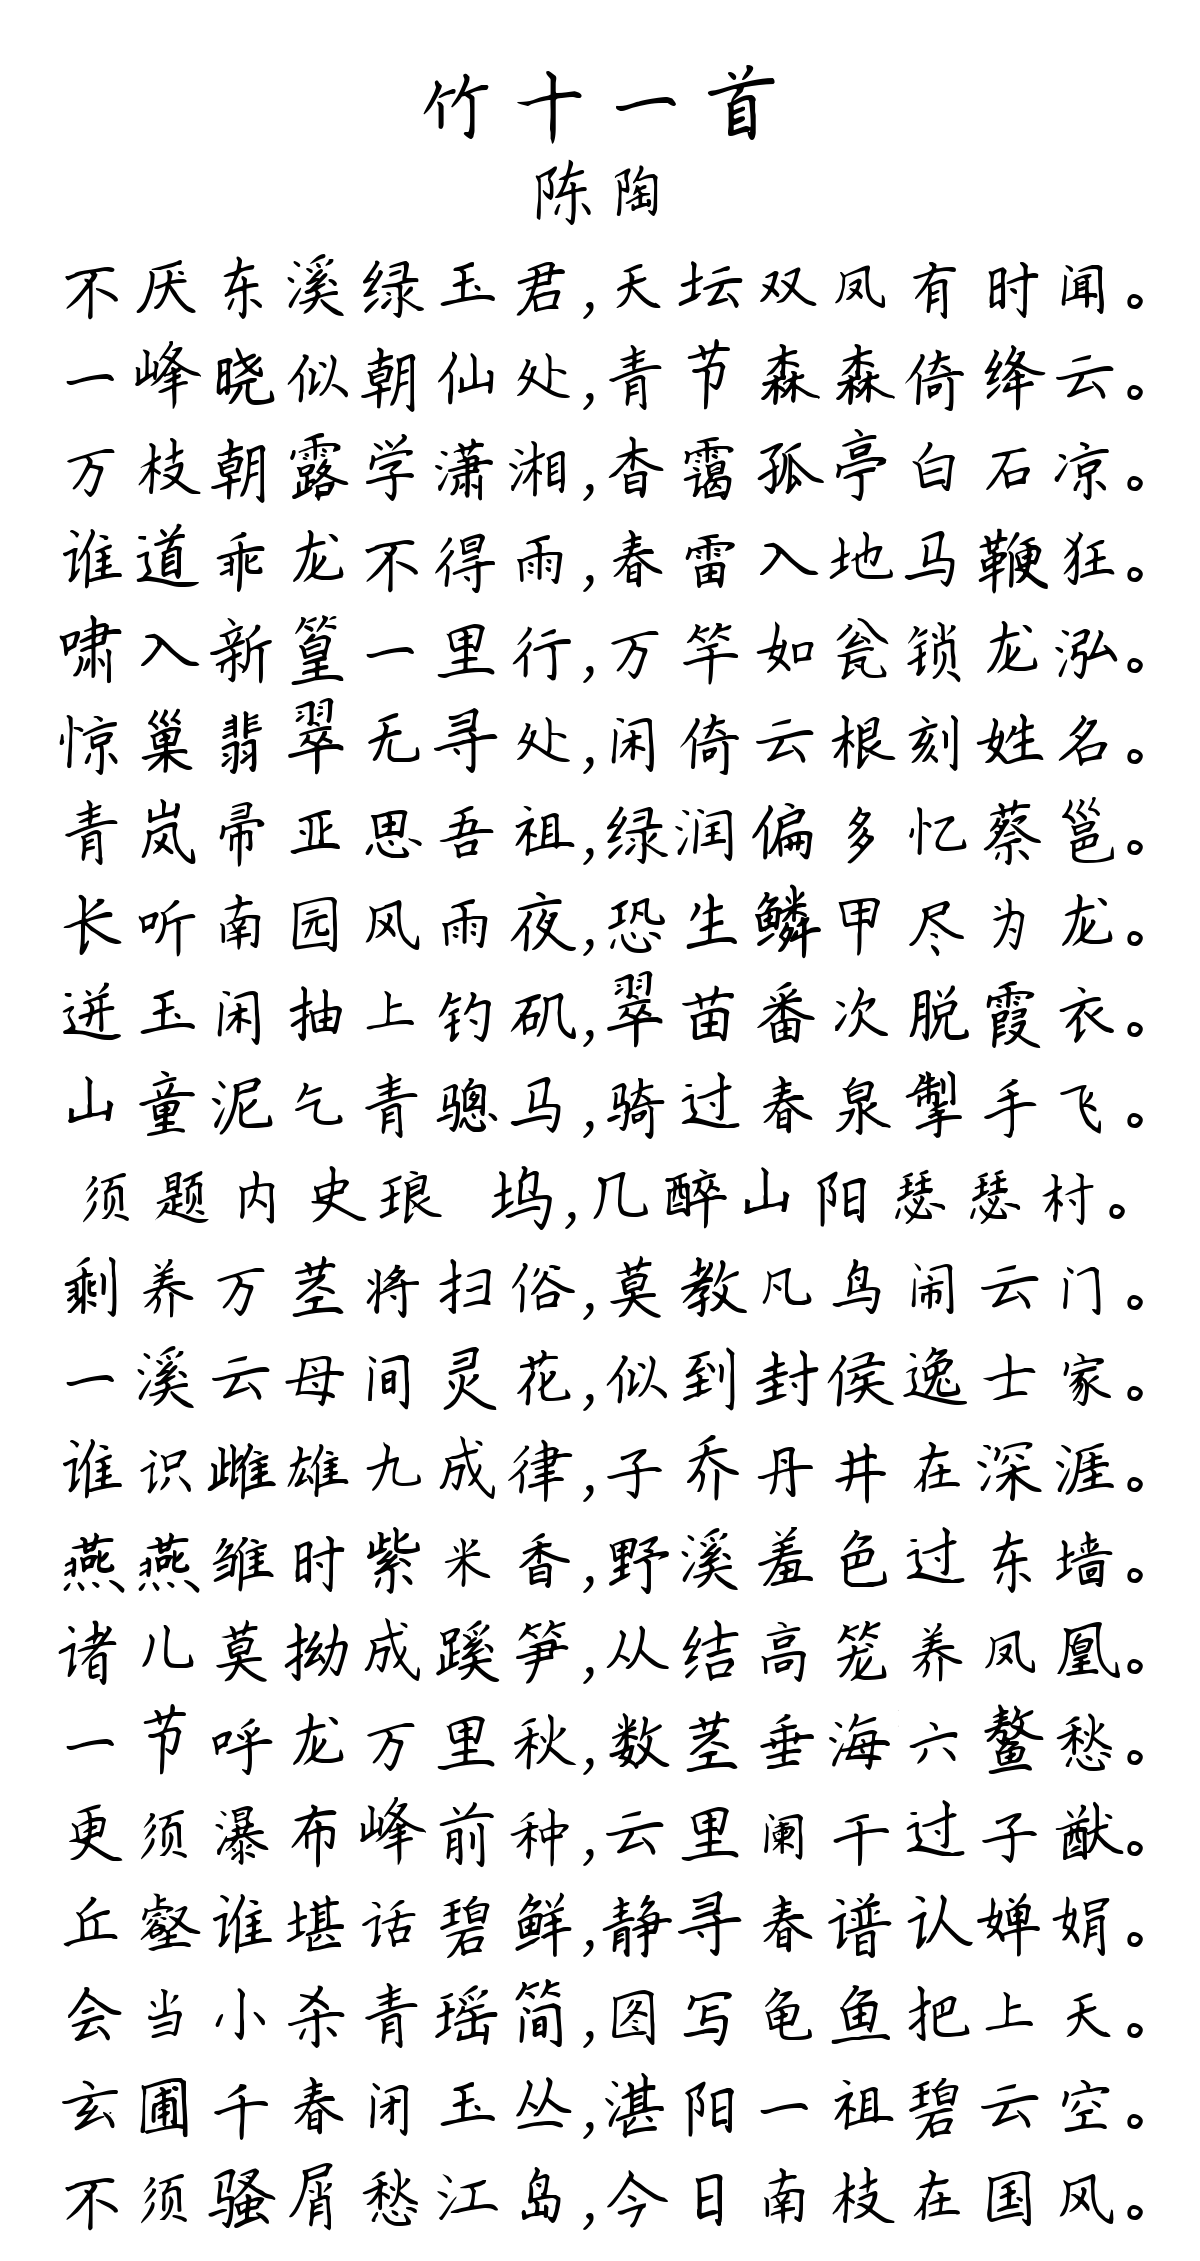 竹十一首
陈陶
不厌东溪绿玉君,天坛双凤有时闻。
一峰晓似朝仙处,青节森森倚绛云。
万枝朝露学潇湘,杳霭孤亭白石凉。
谁道乖龙不得雨,春雷入地马鞭狂。
啸入新篁一里行,万竿如瓮锁龙泓。
惊巢翡翠无寻处,闲倚云根刻姓名。
青岚帚亚思吾祖,绿润偏多忆蔡邕。
长听南园风雨夜,恐生鳞甲尽为龙。
迸玉闲抽上钓矶,翠苗番次脱霞衣。
山童泥乞青骢马,骑过春泉掣手飞。
须题内史琅 坞,几醉山阳瑟瑟村。
剩养万茎将扫俗,莫教凡鸟闹云门。
一溪云母间灵花,似到封侯逸士家。
谁识雌雄九成律,子乔丹井在深涯。
燕燕雏时紫米香,野溪羞色过东墙。
诸儿莫拗成蹊笋,从结高笼养凤凰。
一节呼龙万里秋,数茎垂海六鳌愁。
更须瀑布峰前种,云里阑干过子猷。
丘壑谁堪话碧鲜,静寻春谱认婵娟。
会当小杀青瑶简,图写龟鱼把上天。
玄圃千春闭玉丛,湛阳一祖碧云空。
不须骚屑愁江岛,今日南枝在国风。